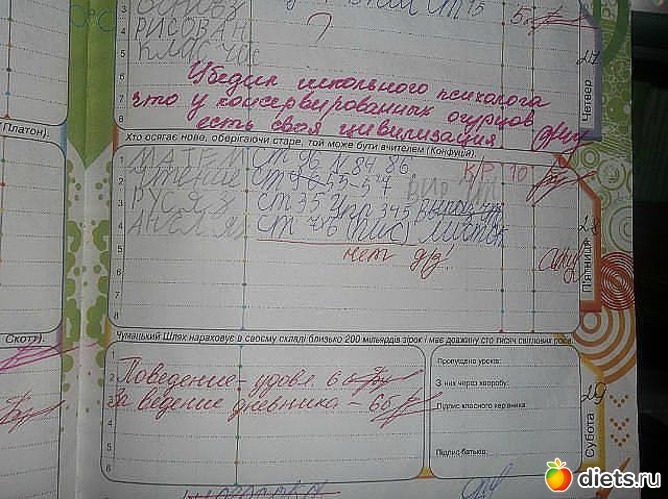 СТ 15
5
РИСОВАН
КЛАС ЧАС
?
Убедил школьного психолога
что у консервированных огурцов
есть своя цивилизация
Четвер
27
Платон).
Хто осягає нове, оберігаючи старе, той може бути вчителем (Конфуцій).
МАТЕМ СТ 96 N 84, 86 К/Р 10
ЧТЕНИЕ СТ 96 55-57
РУС ЯЗ СТ 35 Упр 345
АНГЛ ЯЗ СТ (пис) листок
нет д/з!
П'ятниця
28
Скотт).
Чумацький Шлях нараховує в своєму складі близько 200 мільярдів зірок і має довжину сто тисяч світлових років.
Поведение – удовл. 6 б
За ведение дневника – 6б
Пропущено уроків:
З них через хворобу:
Підпис класного керівника
Підпис батьків:
Субота
29
diets.ru